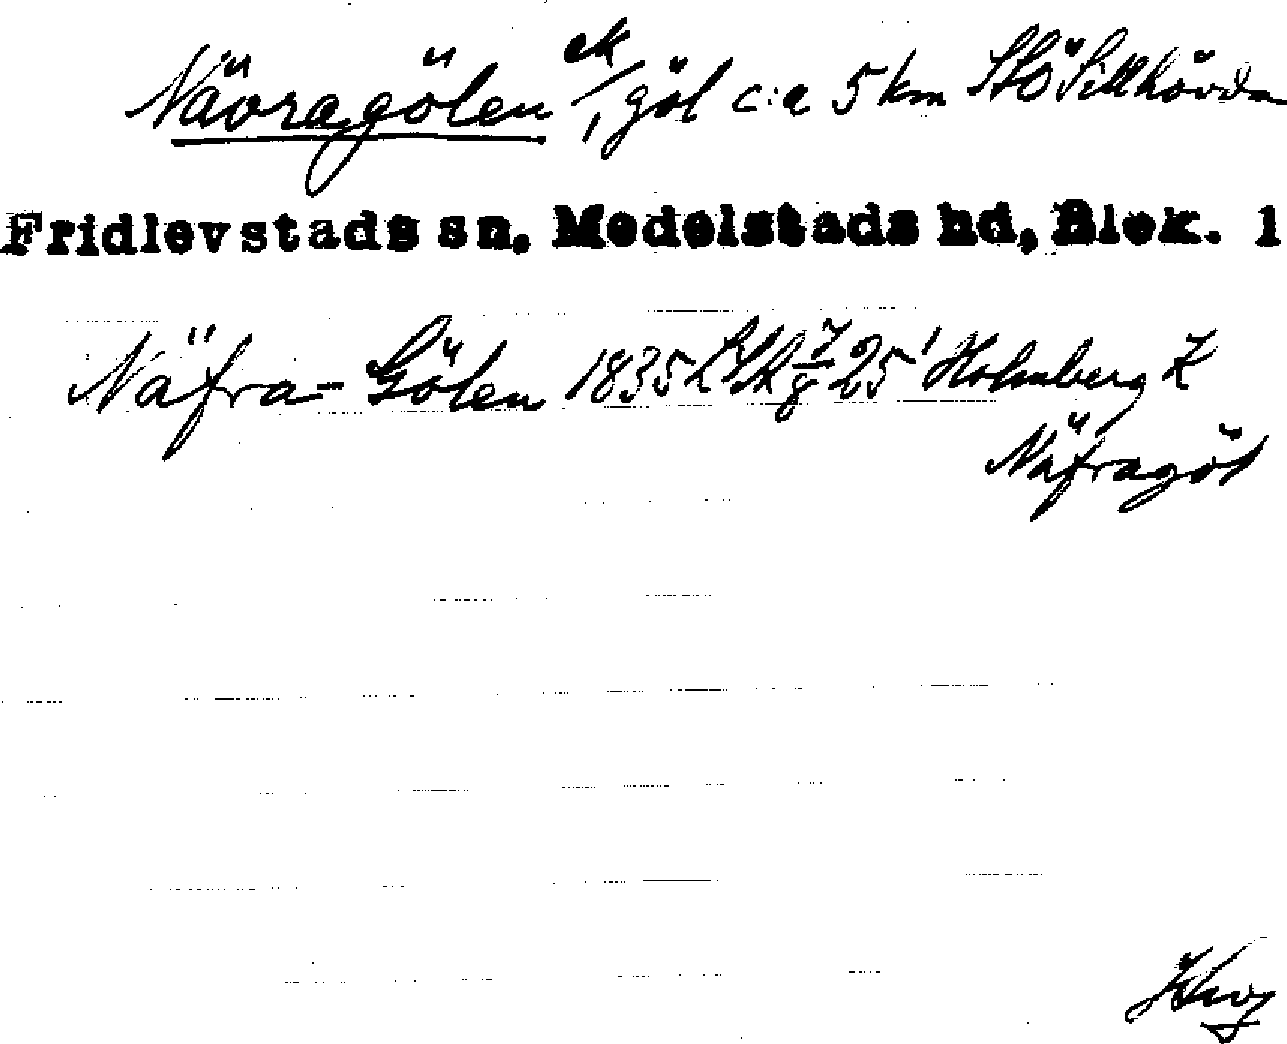 Nävragölen ek/, göl c:a 5 km SSÖ Sillhövda
Fridlevstads sn, Medelstads hd, Blek. 1
Näfra-Gölen 1835 7/8 25' Holmberg K
Näfragöl